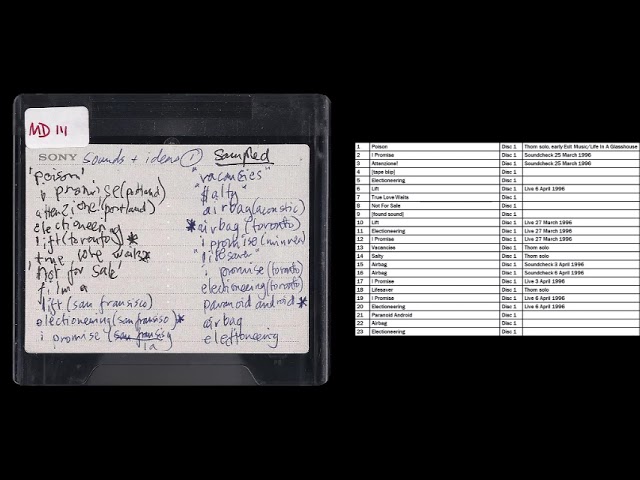 MD 111
SONY sounds + ideas ① sampled
"poison"
i promise (portland)
attenzione! (portland)
electioneering
lift (toronto) *
true love waits *
'not for sale'
lift (san fransisco)
electioneering (san fransiso) *
i promise
la
"vacancies"
"salty"
airbag (acoustic)
* airbag (toronto)
i promise
"lifesaver"
i promise (toronto)
electioneering (toronto)
paranoid android *
airbag
electioneering
1 Poison Disc 1 Thom solo, early Exit Music/Life In A Glasshouse
2 I Promise Disc 1 Soundcheck 25 March 1996
3 Attenzione! Disc 1 Soundcheck 25 March 1996
4 [tape blip] Disc 1
5 Electioneering Disc 1
6 Lift Disc 1 Live 6 April 1996
7 True Love Waits Disc 1
8 Not For Sale Disc 1
9 [found sound] Disc 1
10 Lift Disc 1 Live 27 March 1996
11 Electioneering Disc 1 Live 27 March 1996
12 I Promise Disc 1 Live 27 March 1996
13 Vacancies Disc 1 Thom solo
14 Salty Disc 1 Thom solo
15 Airbag Disc 1 Soundcheck 3 April 1996
16 Airbag Disc 1 Soundcheck 6 April 1996
17 I Promise Disc 1 Live 3 April 1996
18 Lifesaver Disc 1 Thom solo
19 I Promise Disc 1 Live 6 April 1996
20 Electioneering Disc 1 Live 6 April 1996
21 Paranoid Android Disc 1
22 Airbag Disc 1
23 Electioneering Disc 1